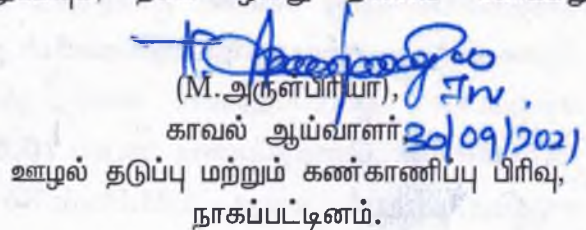 (M.அருள்பிரியா),
காவல் ஆய்வாளர் 30/09/2021
ஊழல் தடுப்பு மற்றும் கண்காணிப்பு பிரிவு,
நாகப்பட்டினம்.